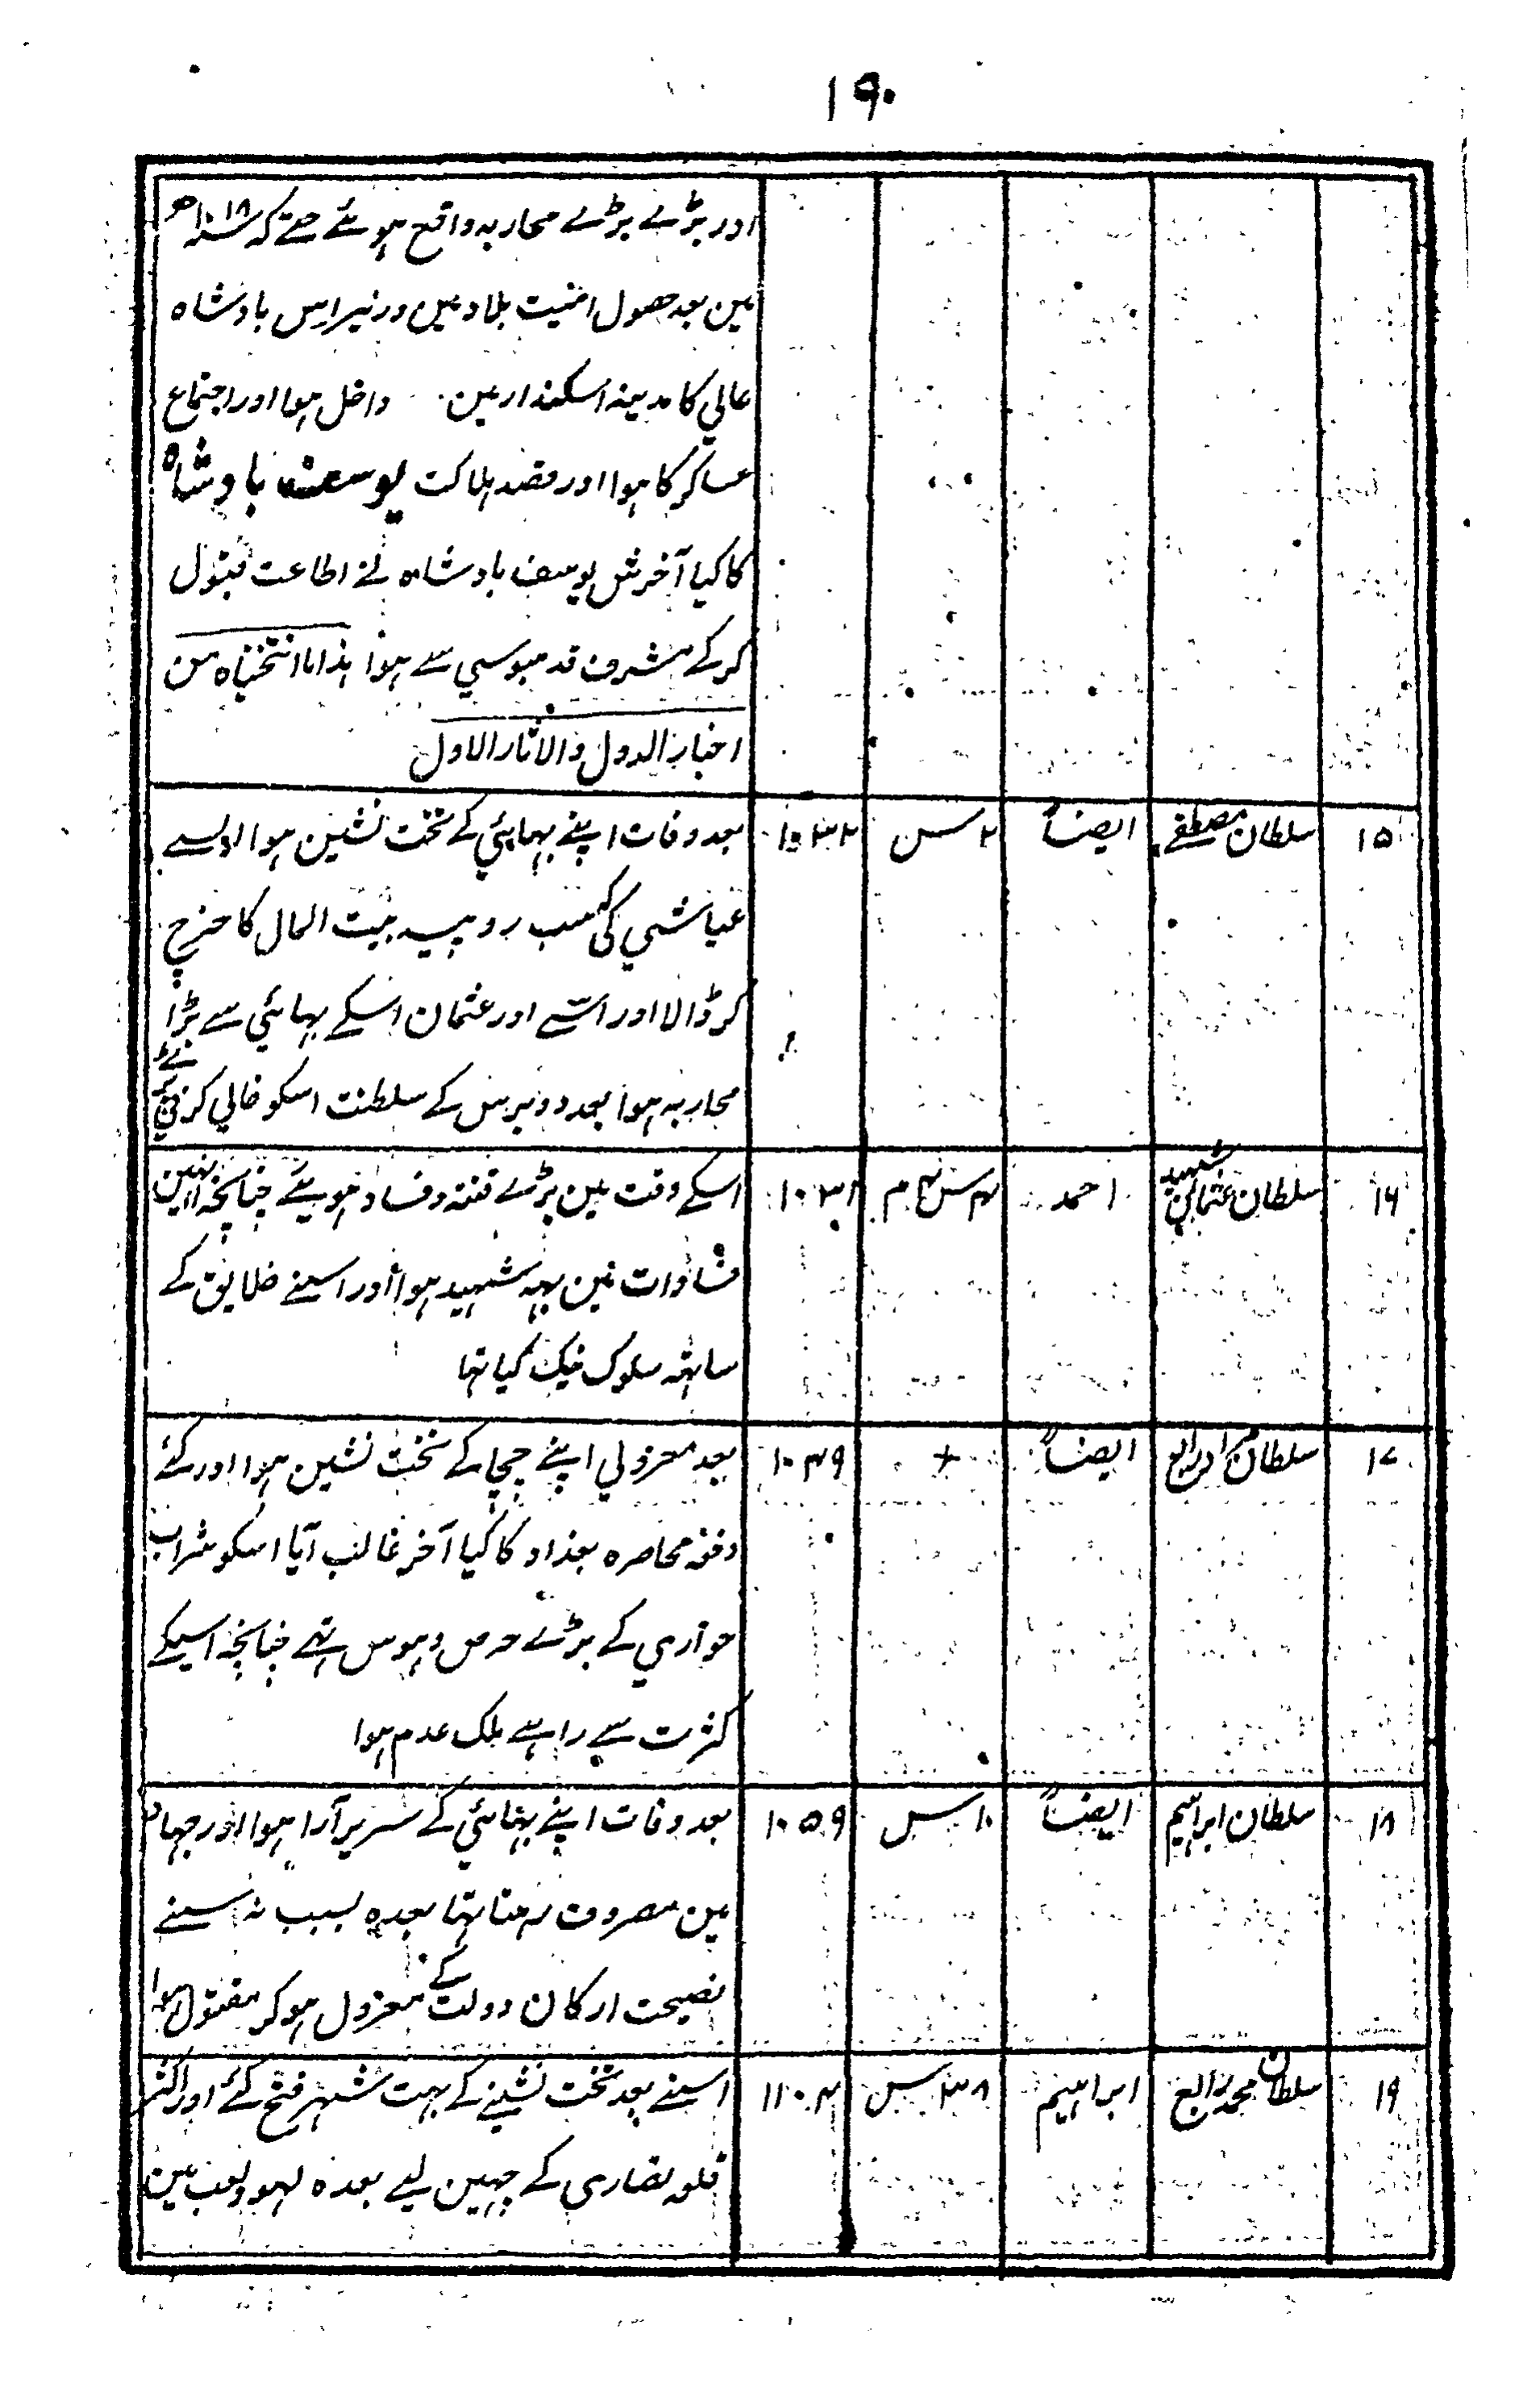 ۱۹۰
اور بڑے بڑے محاربہ واقع ہوئے حتے کہ سنہ ۱۰۱۸ھ
مین بعد حصول امنیت بلاد مین وزیر اس بادشاہ
عالي کا مدینہ اسکندار مین داخل ہوا اور اجتماع
عساکر کا ہوا اور مقصد ہلاکت یوسف بادشاہ
کا کیا آخرش یوسف بادشاہ نے اطاعت قبول
کر کے مشرف قدمبوسي سے ہوا ہذا ما انتخبناہ من
اخبار الدول والاثار الاول
۱۵ سلطان مصطفے ایضاً ۲ سن ۱۰۳۲ بعد وفات اپنے بہائي کے تخت نشین ہوا
عیاشي کی سب روپیہ بیت المال کا خرچ
کر ڈالا اور اسے اور عثمان اسکے بہائي سے بڑا
محاربہ ہوا بعد دو برس کے سلطنت اسکو خالي کرني پڑي
۱۶ سلطان عثمان شہید احمد ۴ سن ۴ م ۱۰۳۱ اسکے وقت مین بڑے فتنہ و فساد ہوئے چنانچہ انہین
فسادات مین یہہ شہید ہوا اور اسنے خلایق کے
ساتہہ سلوک نیک کیا تہا
۱۷ سلطان مراد رابع ایضاً + ۱۰۴۹ بعد معزولي اپنے چچا کے تخت نشین ہوا اور کئے
دفعہ محاصرہ بغداد کا کیا آخر غالب آیا اسکو شراب
خواري کے بڑے حرص و ہوس تہے چنانچہ اسیکے
کثرت سے راہے ملک عدم ہوا
۱۸ سلطان ابراہیم ایضاً ۱۰ سن ۱۰۵۹ بعد وفات اپنے بہائي کے سریر آرا ہوا اور جہاد
مین مصروف رہتا تہا بعدہ بسبب نہ سننے
نصیحت ارکان دولت کے معزول ہو کر مقتول ہوا
۱۹ سلطان محمد رابع ابراہیم ۳۸ سن ۱۱۰۴ اسنے بعد تخت نشینے کے بہت شہر فتح کئے اور اکثر
قلعہ نصاري کے چہین لیے بعدہ لہو ولعب مین